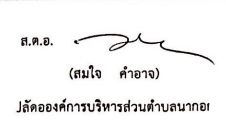 ส.ต.อ.
(สมใจ คำอาจ)
ปลัดองค์การบริหารส่วนตำบลนากอก